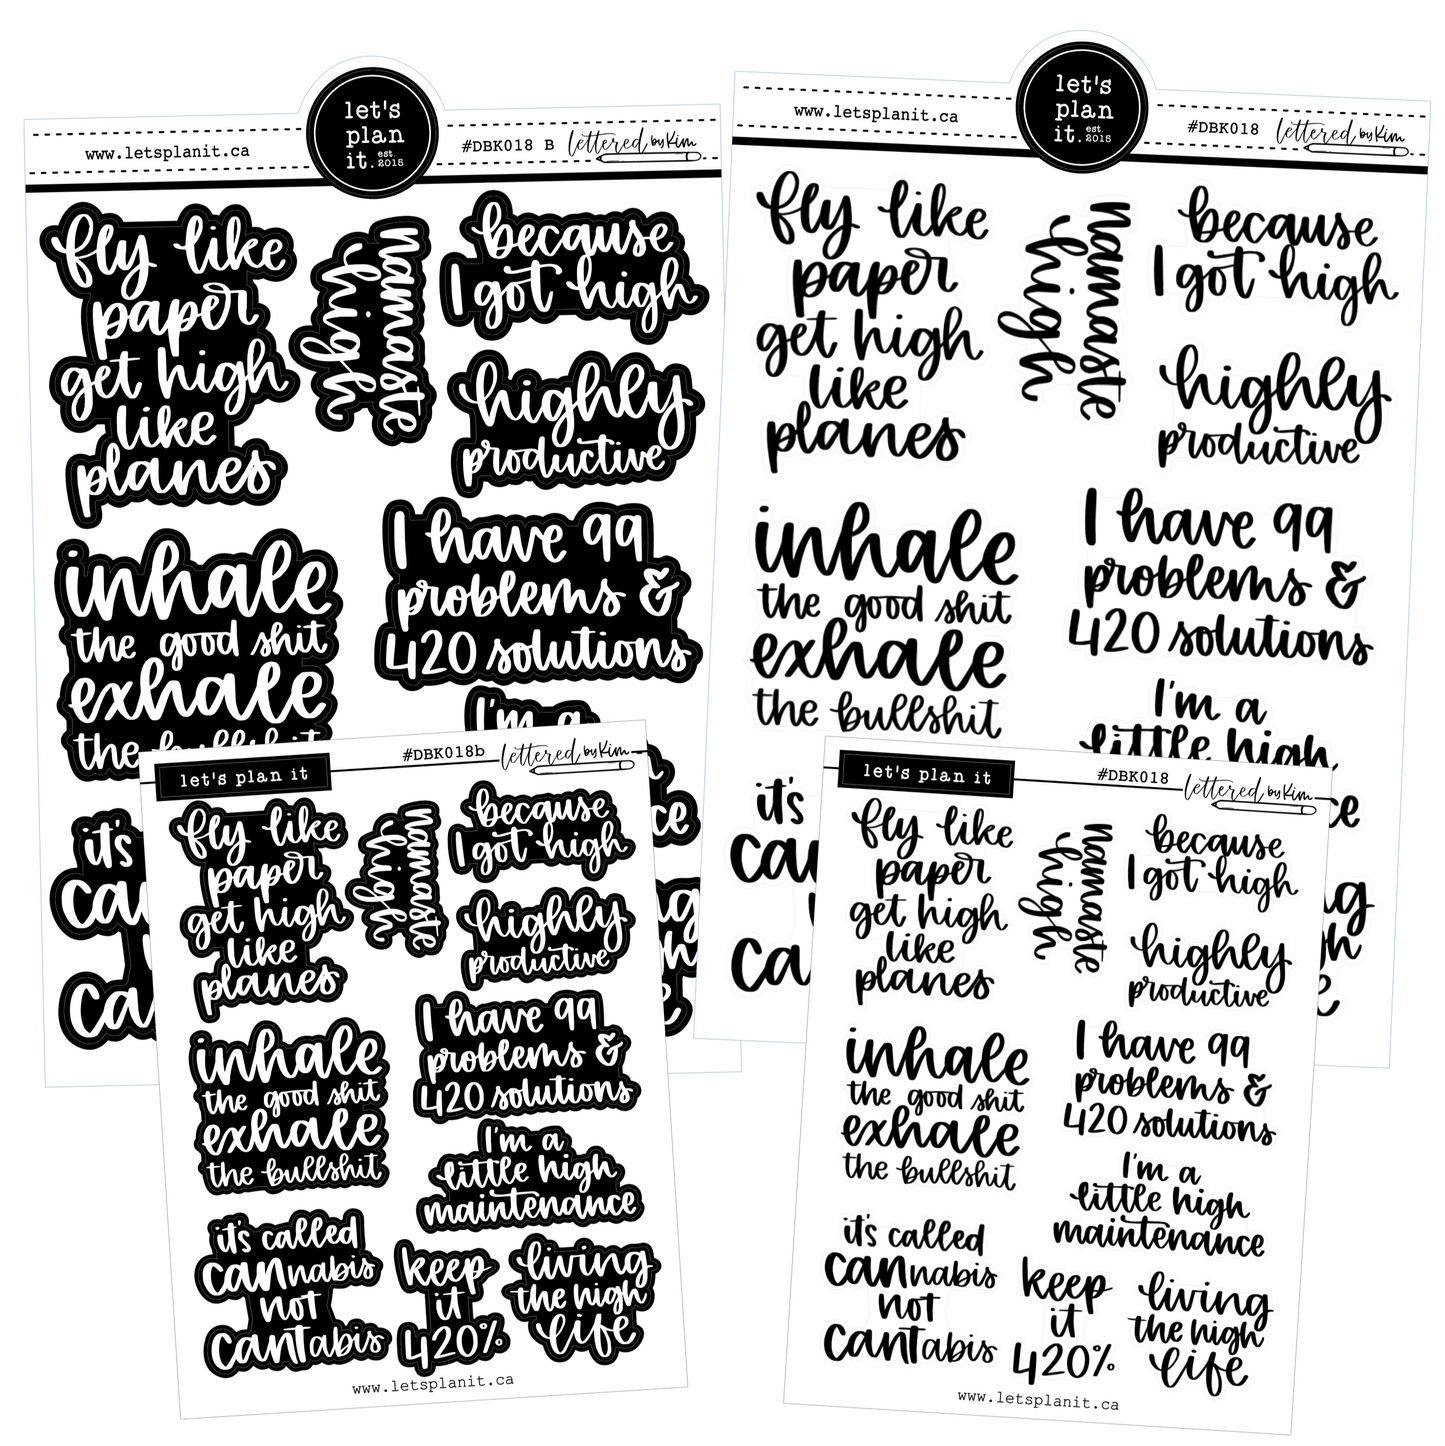 let's
plan
it. est. 2015
www.letsplanit.ca
#DBK018 B
lettered by Kim
fly like
paper
get high
like
planes
namaste
high
because
I got high
highly
productive
inhale
the good shit
exhale
the bullshit
I have 99
problems &
420 solutions
I'm a
it's
can
ca
ce
g
h
let's
plan
it. est. 2015
www.letsplanit.ca
#DBK018
lettered by Kim
fly like
paper
get high
like
planes
namaste
high
because
I got high
highly
productive
inhale
the good shit
exhale
the bullshit
I have 99
problems &
420 solutions
I'm a
little high
it's
ca
ca
ce
g
h
e
let's plan it
#DBK018b
lettered by Kim
fly like
paper
get high
like
planes
namaste
high
because
I got high
highly
productive
inhale
the good shit
exhale
the bullshit
I have 99
problems &
420 solutions
I'm a
little high
maintenance
it's called
CANnabis
not
CANTabis
keep
it
420%
living
the high
life
www.letsplanit.ca
let's plan it
#DBK018
lettered by Kim
fly like
paper
get high
like
planes
namaste
high
because
I got high
highly
productive
inhale
the good shit
exhale
the bullshit
I have 99
problems &
420 solutions
I'm a
little high
maintenance
it's called
CANnabis
not
CANTabis
keep
it
420%
living
the high
life
www.letsplanit.ca